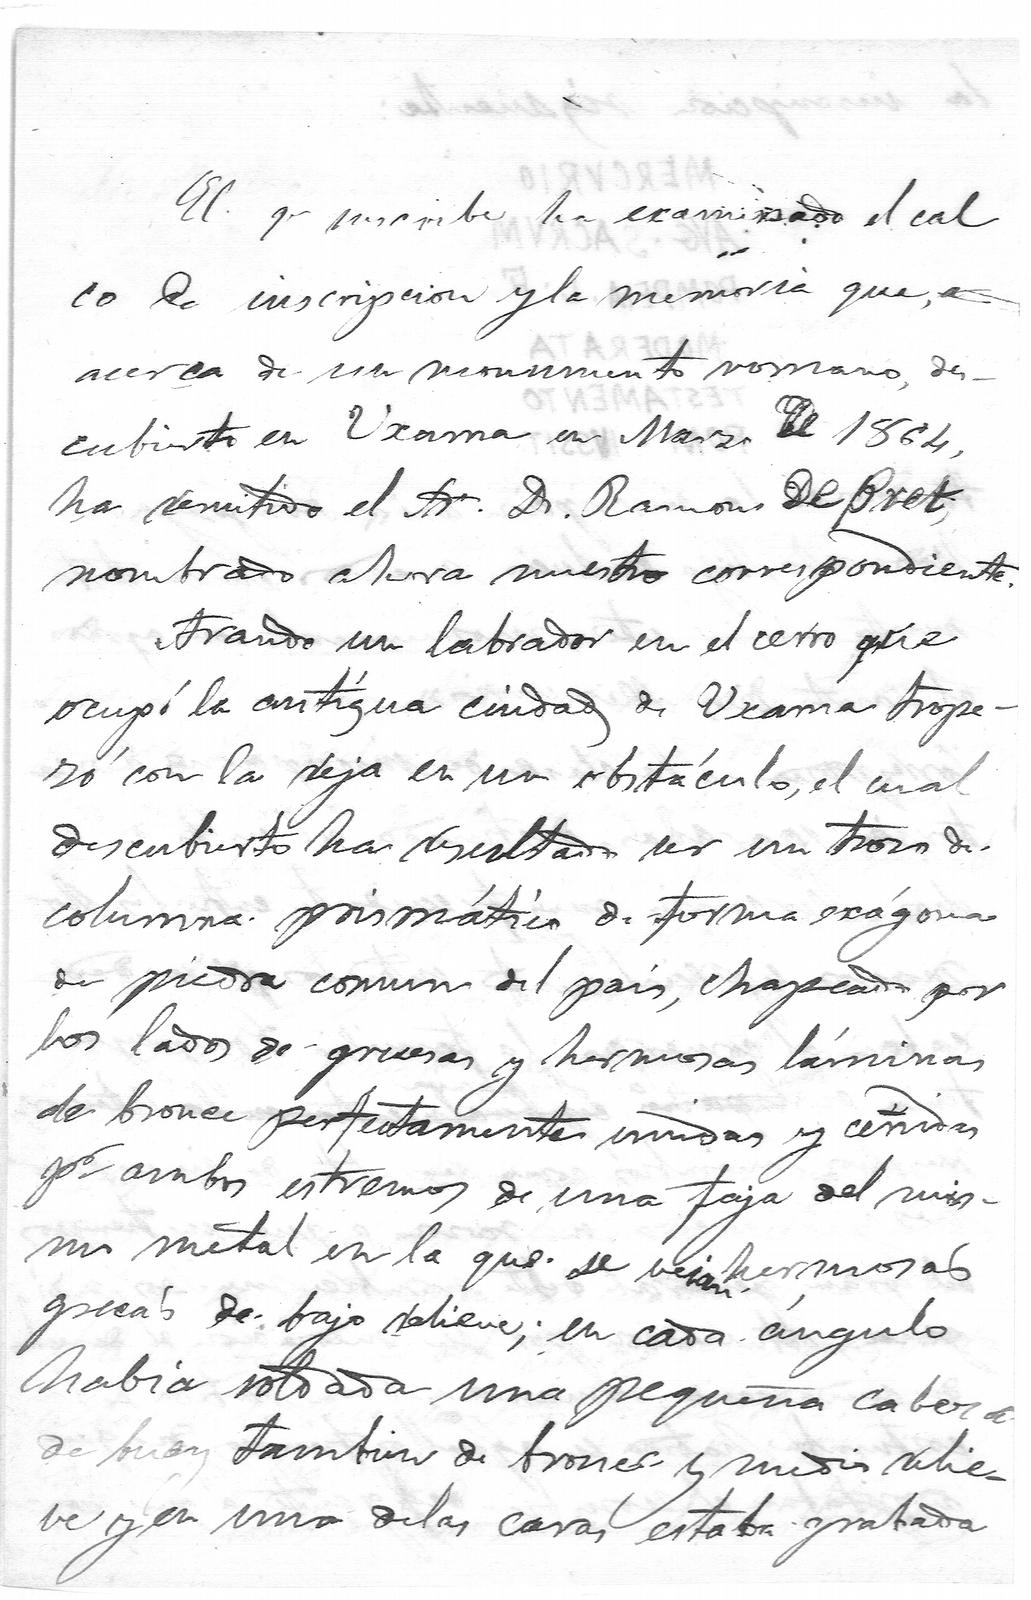 El qe suscribe ha examinado el cal
co de inscripcion y la memoria que, a
acerca de un monumento romano, des-
cubierto en Uxama en Marzo de 1864,
ha remitido el Sr. D. Ramon
nombrado ahora nuestro correspondiente.
Arando un labrador en el cerro que
ocupó la antígua ciudad de Uxama trope-
zó con la reja en un obstáculo, el cual
descubierto ha resultado ser un trozo de
columna prismática de forma exágona
de piedra comun del pais, chapeada por
los lados de gruesas y hermosas láminas
de bronce perfectamente unidas y ceñidas
pr ambos estremos de una faja del mis-
mo metal en la que se veian hermosas
grecas de bajo relieve; en cada ángulo
habia soldada una pequeña cabeza
de buey tambien de bronce y medio relie-
ve y en una de las caras estaba grabada
la inscripcion siguiente:
MERCVRIO
AVG·SACRVM
TESTAMENTO